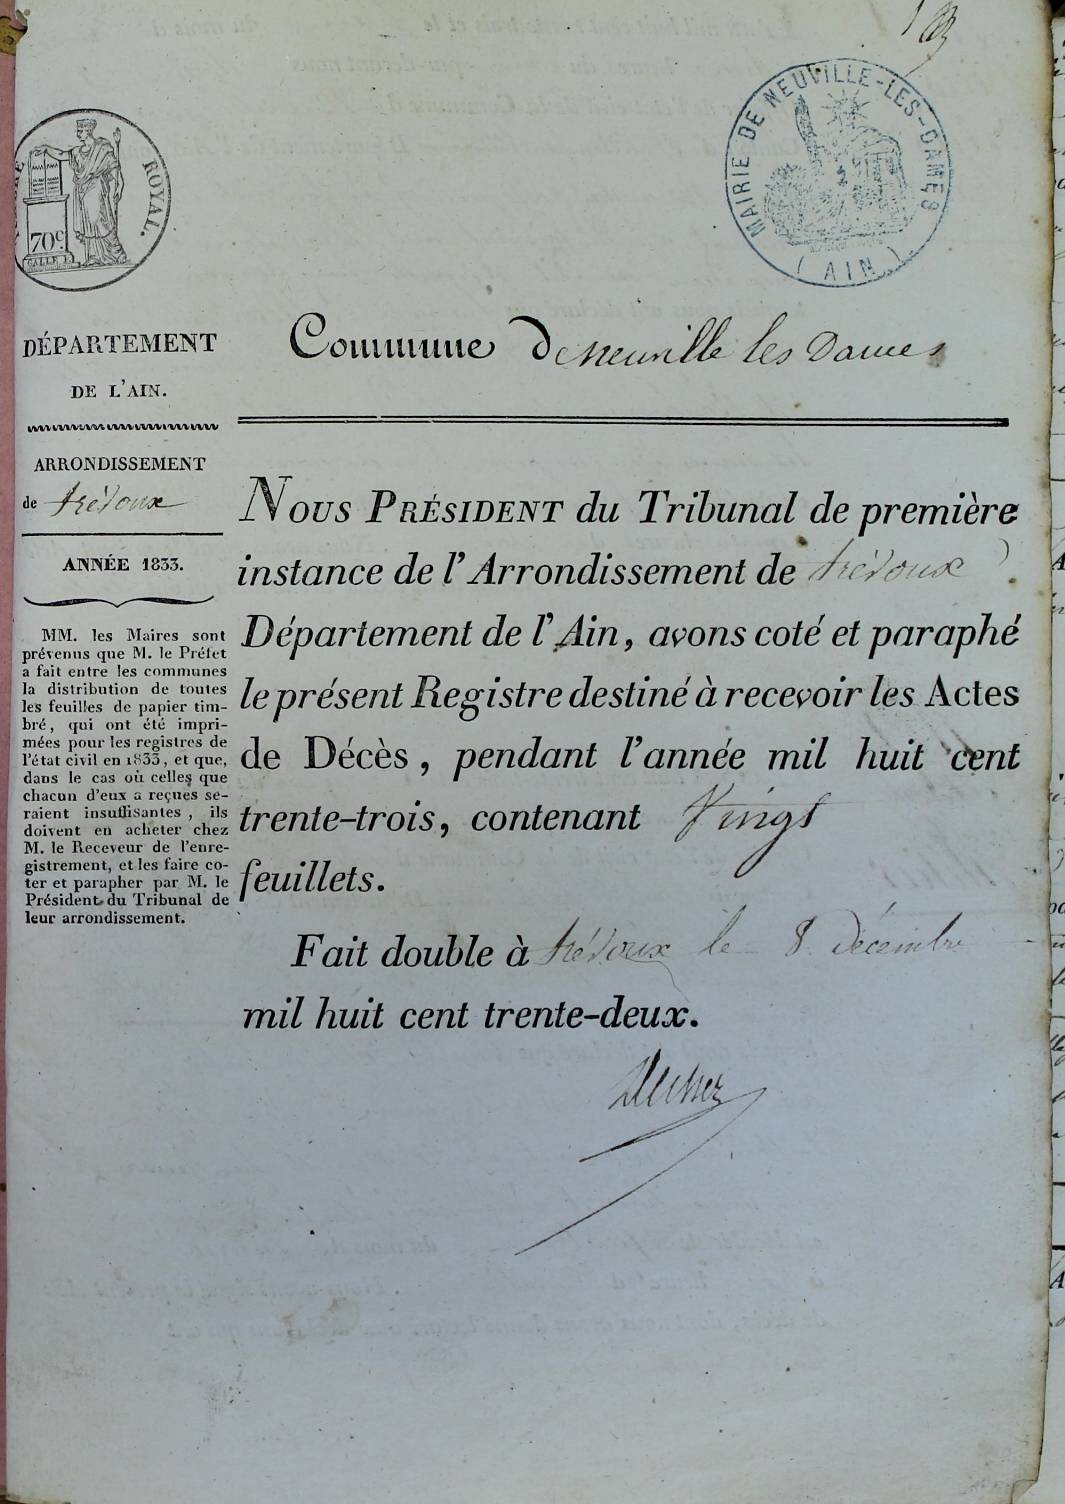 MAIRIE DE NEUVILLE-LES-DAMES
(AIN)
ROYAL.
70c
DÉPARTEMENT
DE L'AIN.
ARRONDISSEMENT
de trévoux
ANNÉE 1833.
MM. les Maires sont
prévenus que M. le Préfet
a fait entre les communes
la distribution de toutes
les feuilles de papier tim-
bré, qui ont été impri-
mées pour les registres de
l'état civil en 1833, et que,
dans le cas où celles que
chacun d'eux a reçues se-
raient insuffisantes, ils
doivent en acheter chez
M. le Receveur de l'enre-
gistrement, et les faire co-
ter et parapher par M. le
Président du Tribunal de
leur arrondissement.
Commune De Neuville les Dames
NOUS PRÉSIDENT du Tribunal de première
instance de l'Arrondissement de trévoux
Département de l'Ain, avons coté et paraphé
le présent Registre destiné à recevoir les Actes
de Décès, pendant l'année mil huit cent
trente-trois, contenant Vingt
feuillets.
Fait double à trévoux le 8 décembre
mil huit cent trente-deux.